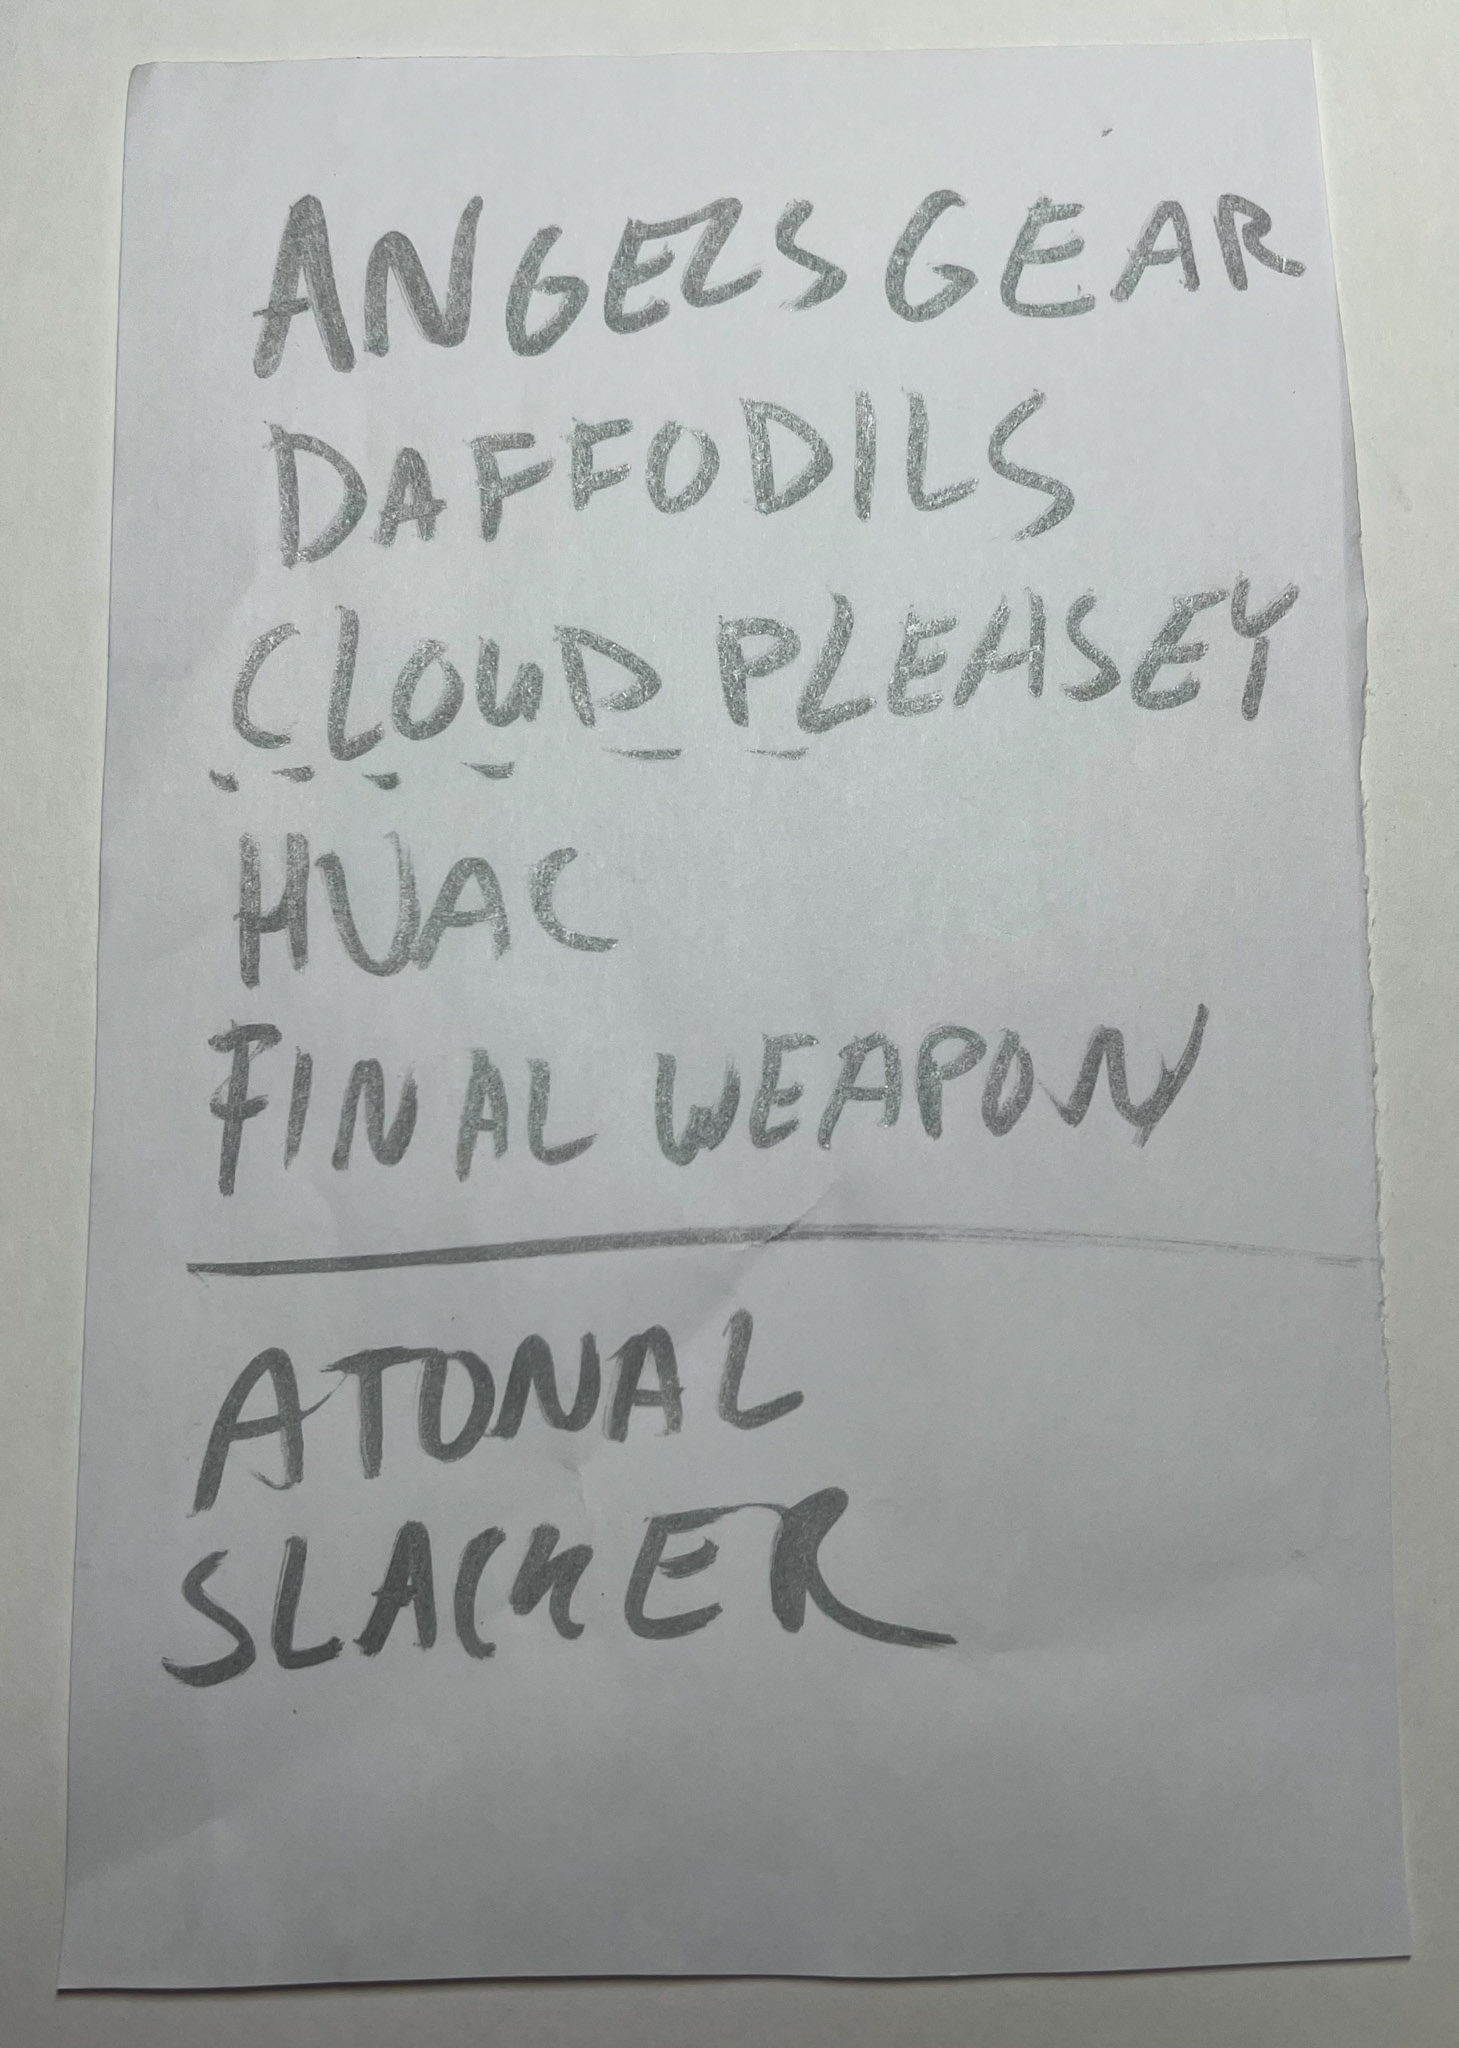 ANGELS GEAR
DAFFODILS
CLOUD PLEASEY
HVAC
FINAL WEAPON
ATONAL
SLACKER